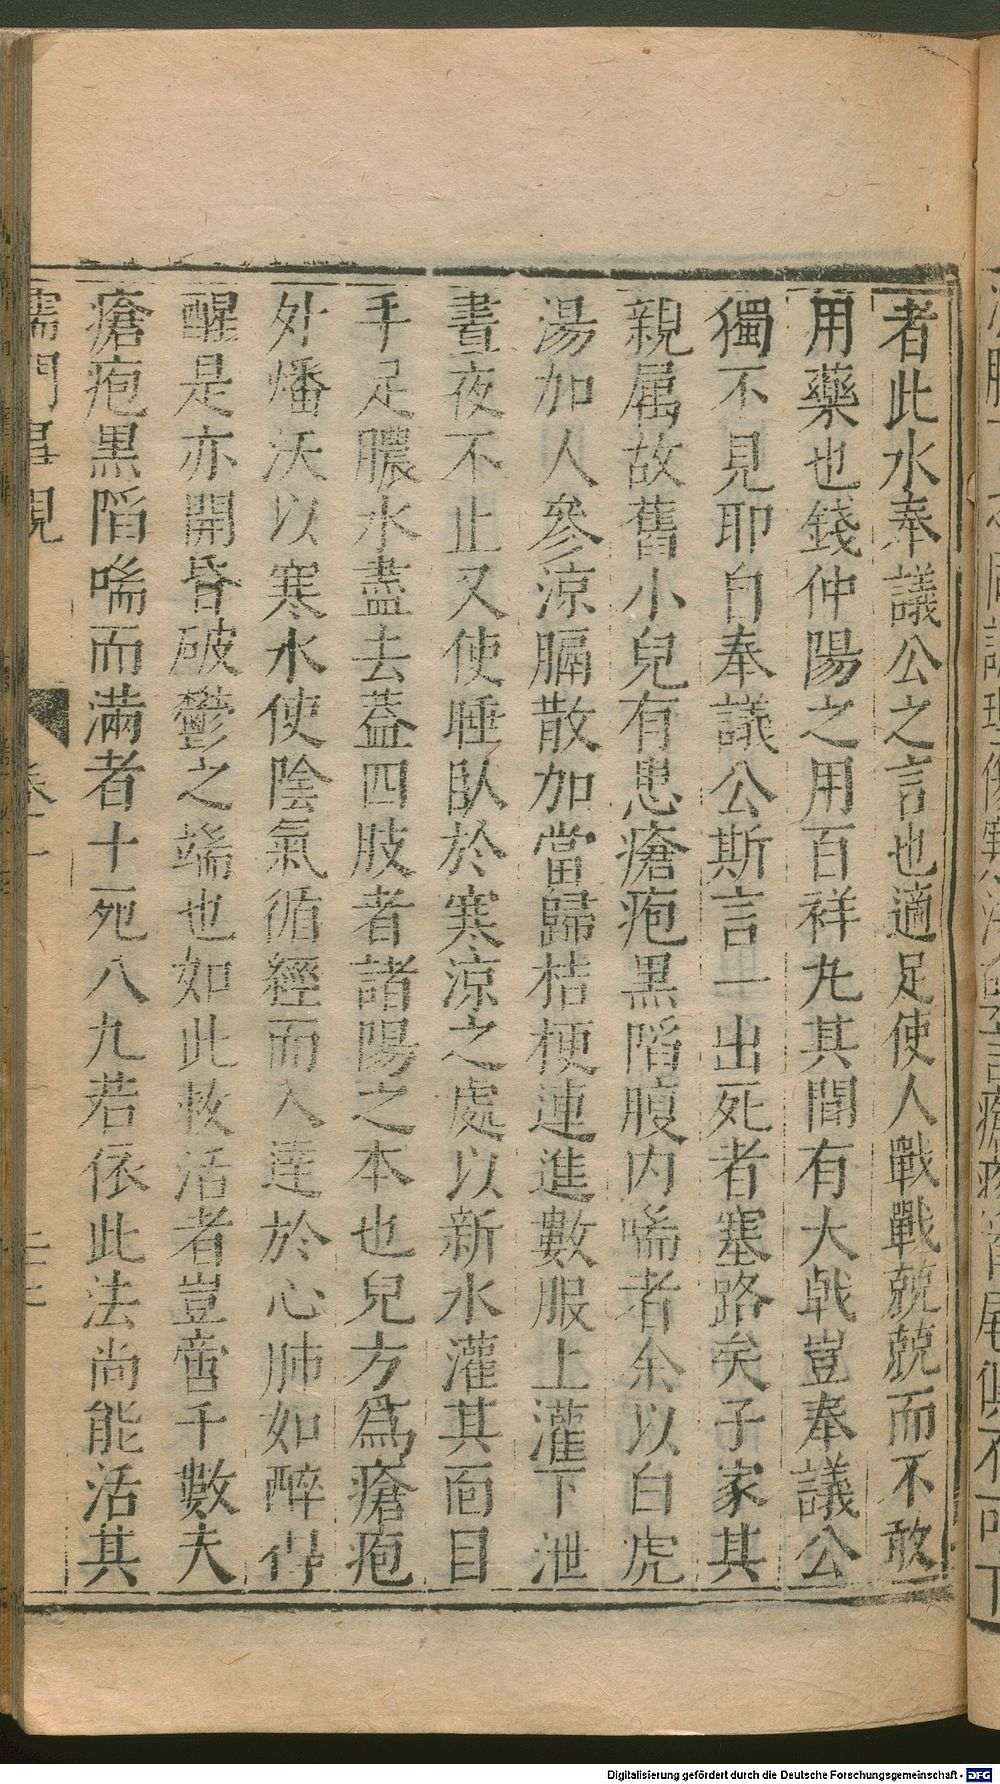 者此水奉議公之言也適足使人戰戰兢兢而不敢
用藥也錢仲陽之用百祥丸其間有大戟豈奉議公
獨不見耶自奉議公斯言一出死者塞路矣予家其
親属故舊小兒有患瘡疱黒陷腹内喘者余以白虎
湯加人參涼膈散加當歸桔梗連進數服上灌下泄
晝夜不止又使睡臥於寒涼之處以新水灌其面目
手足膿水盡去蓋四肢者諸陽之本也兒方爲瘡疱
外燔沃以寒水使陰氣循經而入達於心肺如醉得
醒是亦開昏破鬱之端也如此救活者豈啻千數夫
瘡疱黒陷喘而滿者十死八九若依此法尚能活其
儒門事親 卷一
Digitalisierung gefördert durch die Deutsche Forschungsgemeinschaft - DFG